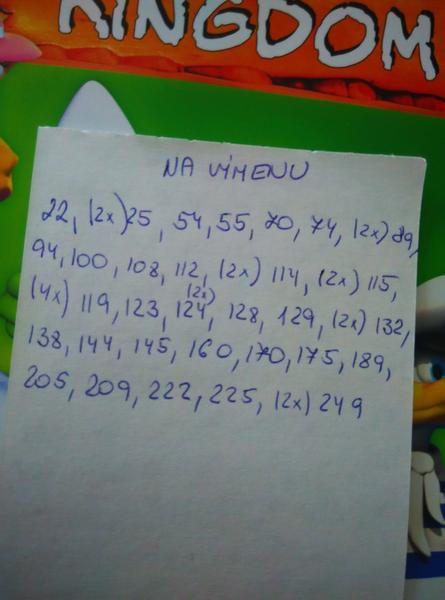 KINGDOM
NA VÍMENU
22, (2x) 25, 54, 55, 70, 74, (2x) 89,
94, 100, 108, 112, (2x) 114, (2x) 115,
(4x) 119, 123, (2x) 124, 128, 129, (2x) 132,
138, 144, 145, 160, 170, 175, 189,
205, 209, 222, 225, (2x) 249